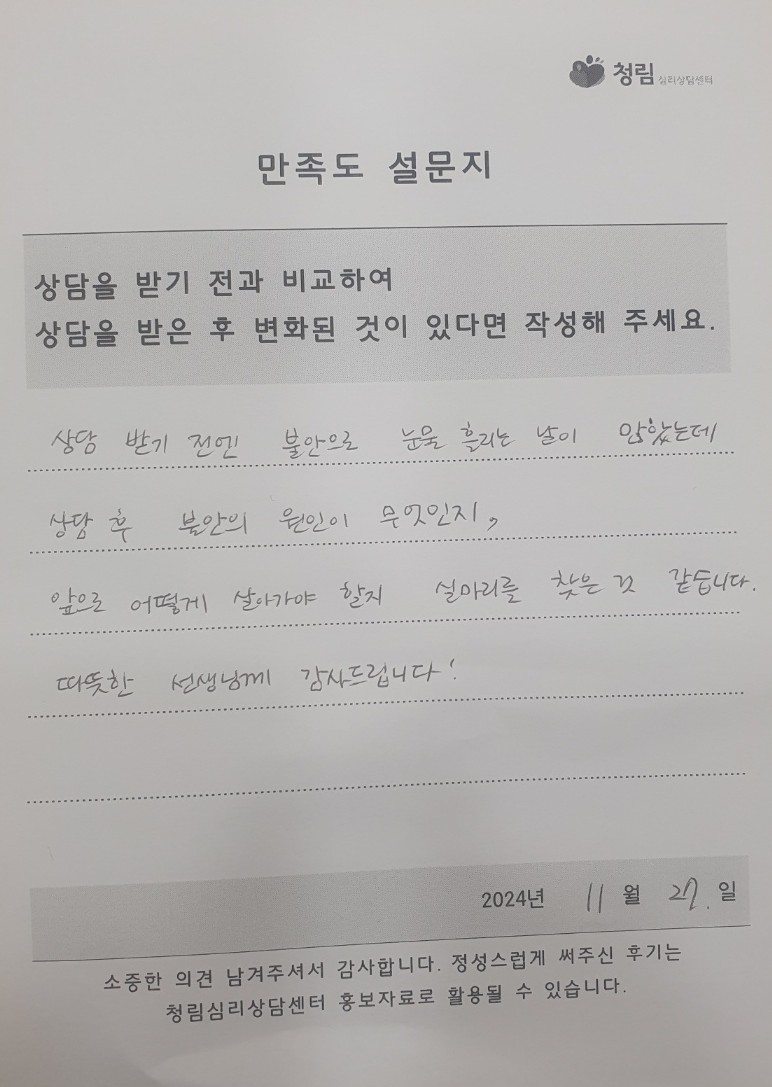 청림 심리상담센터
만족도 설문지
상담을 받기 전과 비교하여
상담을 받은 후 변화된 것이 있다면 작성해 주세요.
상담 받기 전엔 불안으로 눈물 흘리는 날이 많았는데
상담 후 불안의 원인이 무엇인지,
앞으로 어떻게 살아가야 할지 실마리를 찾은 것 같습니다.
따뜻한 선생님께 감사드립니다!
2024년 11월 27.일
소중한 의견 남겨주셔서 감사합니다. 정성스럽게 써주신 후기는
청림심리상담센터 홍보자료로 활용될 수 있습니다.